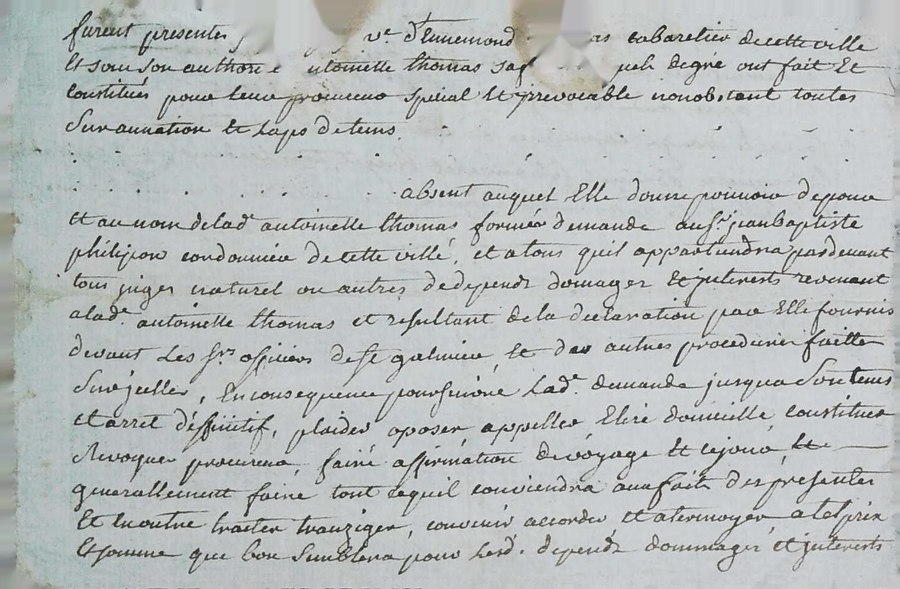 furent presentes ve d'Ennemond as cabaretier de cette ville
Et sous son authori e ntoinette thomas sa degré ont fait Et
Constitués pour leur procureur spécial Et yrrevocable nonobstant toutes
Surannation Et Laps de tems.
absent auquel Elle donne pouvoir de pour
Et au nom de lade antoinette thomas former demande au sr jean baptiste
philipon cordonnier de cette ville, et a tous quil appartiendra pardevant
tous juges naturel ou autres de depends domages Et jnterests revenant
a lade antoinette thomas et resultant de la declaration par Elle fournie
devant Les srs officiers de st galmier Et des autres procedures faittes
Sur jcelles, En consequence poursuivre Lade demande jusqua Sentence
et arret deffinitif, plaider oposer appeller Elire domicille constituer
Revoquer procureur, faire affirmation de voyage Et sejour, Et
generallement faire tout ce quil conviendra au fait des presentes
Et En outre traiter tranziger, convenir accorder Et atermoyer a tel prix
Et somme que bon Semblera pour Lesd. depends dommages et jnterests